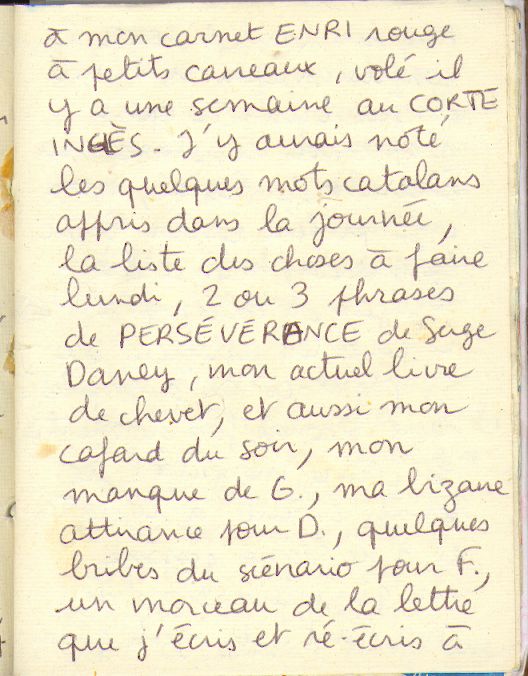 à mon carnet ENRI rouge
à petits carreaux, volé il
y a une semaine au CORTE
INGLÈS. J'y aurais noté
les quelques mots catalans
appris dans la journée,
la liste des choses à faire
lundi, 2 ou 3 phrases
de PERSÉVÉRANCE de Serge
Daney, mon actuel livre
de chevet, et aussi mon
cafard du soir, mon
manque de G., ma bizarre
attirance pour D., quelques
bribes du scénario pour F.,
un morceau de la lettre
que j'écris et ré-écris à